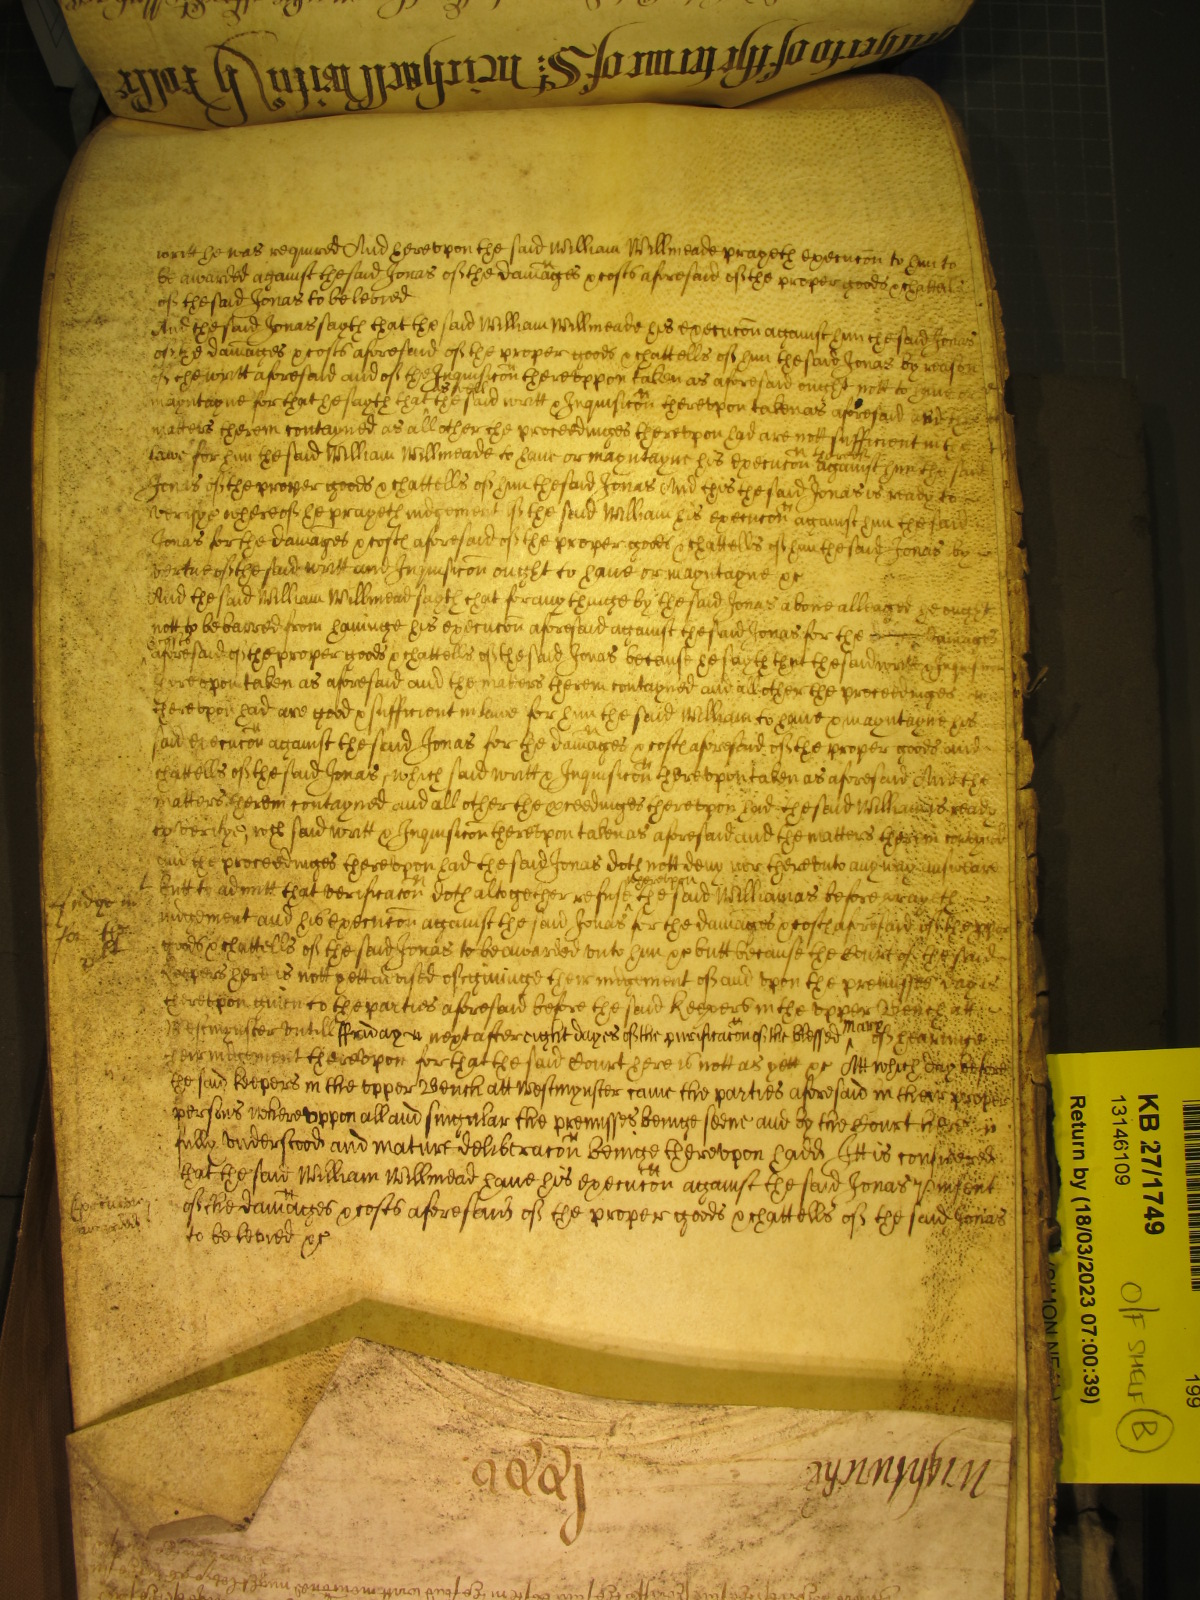 writt he was required And herevpon the said William Willmeade prayeth execucon to him to
be awarded against the said Jonas of the damages & costs aforesaid of the proper goods & chattells
of the said Jonas to be levied
And the said Jonas sayth that the said William Willmeade his execucon against him the said Jonas
of the damages & costs aforesaid of the proper goods & chattells of him the said Jonas by reason
of the writt aforesaid and of the Inquisicon therevppon taken as aforesaid ought nott to have or
mayntayne for that he sayth that the said writt & Inquisicon therevpon taken as aforesaid and the
as well
matters therein contayned as all other the proceedinges therevpon had are nott sufficient in the
lawe for him the said William Willmeade to have or mayntayne his execucon against him the said
Jonas of the proper goods & chattells of him the said Jonas And this the said Jonas is ready to
verifye whereof he prayeth iudgement if the said William his execucon against him the said
Jonas for the damages & costs aforesaid of the proper goods & chattells of him the said Jonas by
vertue of the said writt and Inquisicon ought to have or mayntayne &c
And the said William Willmead sayth that for any thinge by the said Jonas above alleaged he ought
nott to be barred from havinge his execucon aforesaid against the said Jonas for the damages
aforesaid of the proper goods & chattells of the said Jonas because he sayth that the said writt & Inquisicon
therevpon taken as aforesaid and the matters therein contayned and all other the proceedinges
therevpon had are good & sufficient in lawe for him the said William to have & mayntayne his
said execucon against the said Jonas for the damages & costs aforesaid of the proper goods and
chattells of the said Jonas, which said writt & Inquisicon therevpon taken as aforesaid And the
matters therein contayned and all other the proceedinges therevpon had the said William is ready
to verifye, wch said writt & Inquisicon therevpon taken as aforesaid and the matters therein contayned
and the proceedinges therevpon had the said Jonas doth nott deny nor therevnto any way answeare
butt to admitt that verificacon doth altogether refuse the said William as before prayeth
wherevpon
iudgement and his execucon against the said Jonas for the damages & costs aforesaid of the proper
goods & chattells of the said Jonas to be awarded vnto him &c butt because the Court of the said
Keepers here is nott yett advised of giuinge their iudgement of and vpon the premisses day is
therevpon given to the parties aforesaid before the said Keepers in the vpper Bench att
Westmynster vntill ffriday next after eight dayes of the purificacon of the blessed Mary of hearinge
their iudgement therevpon for that the said Court here is nott as yett &c Att which day before
the said Keepers in the vpper Bench att Westmynster came the parties aforesaid in their proper
persons Wherevppon all and singular the premisses beinge seene and by the Court here
fully vnderstood and mature deliberacon beinge therevpon hadd Itt is considered
that the said William Willmead have his execucon against the said Jonas
of the damages & costs aforesaid of the proper goods & chattells of the said Jonas
to be levied &c
Wightwicke
KB 27/1749
13146109
Return by (18/03/2023 07:00:39)
O/F SHELF B
199